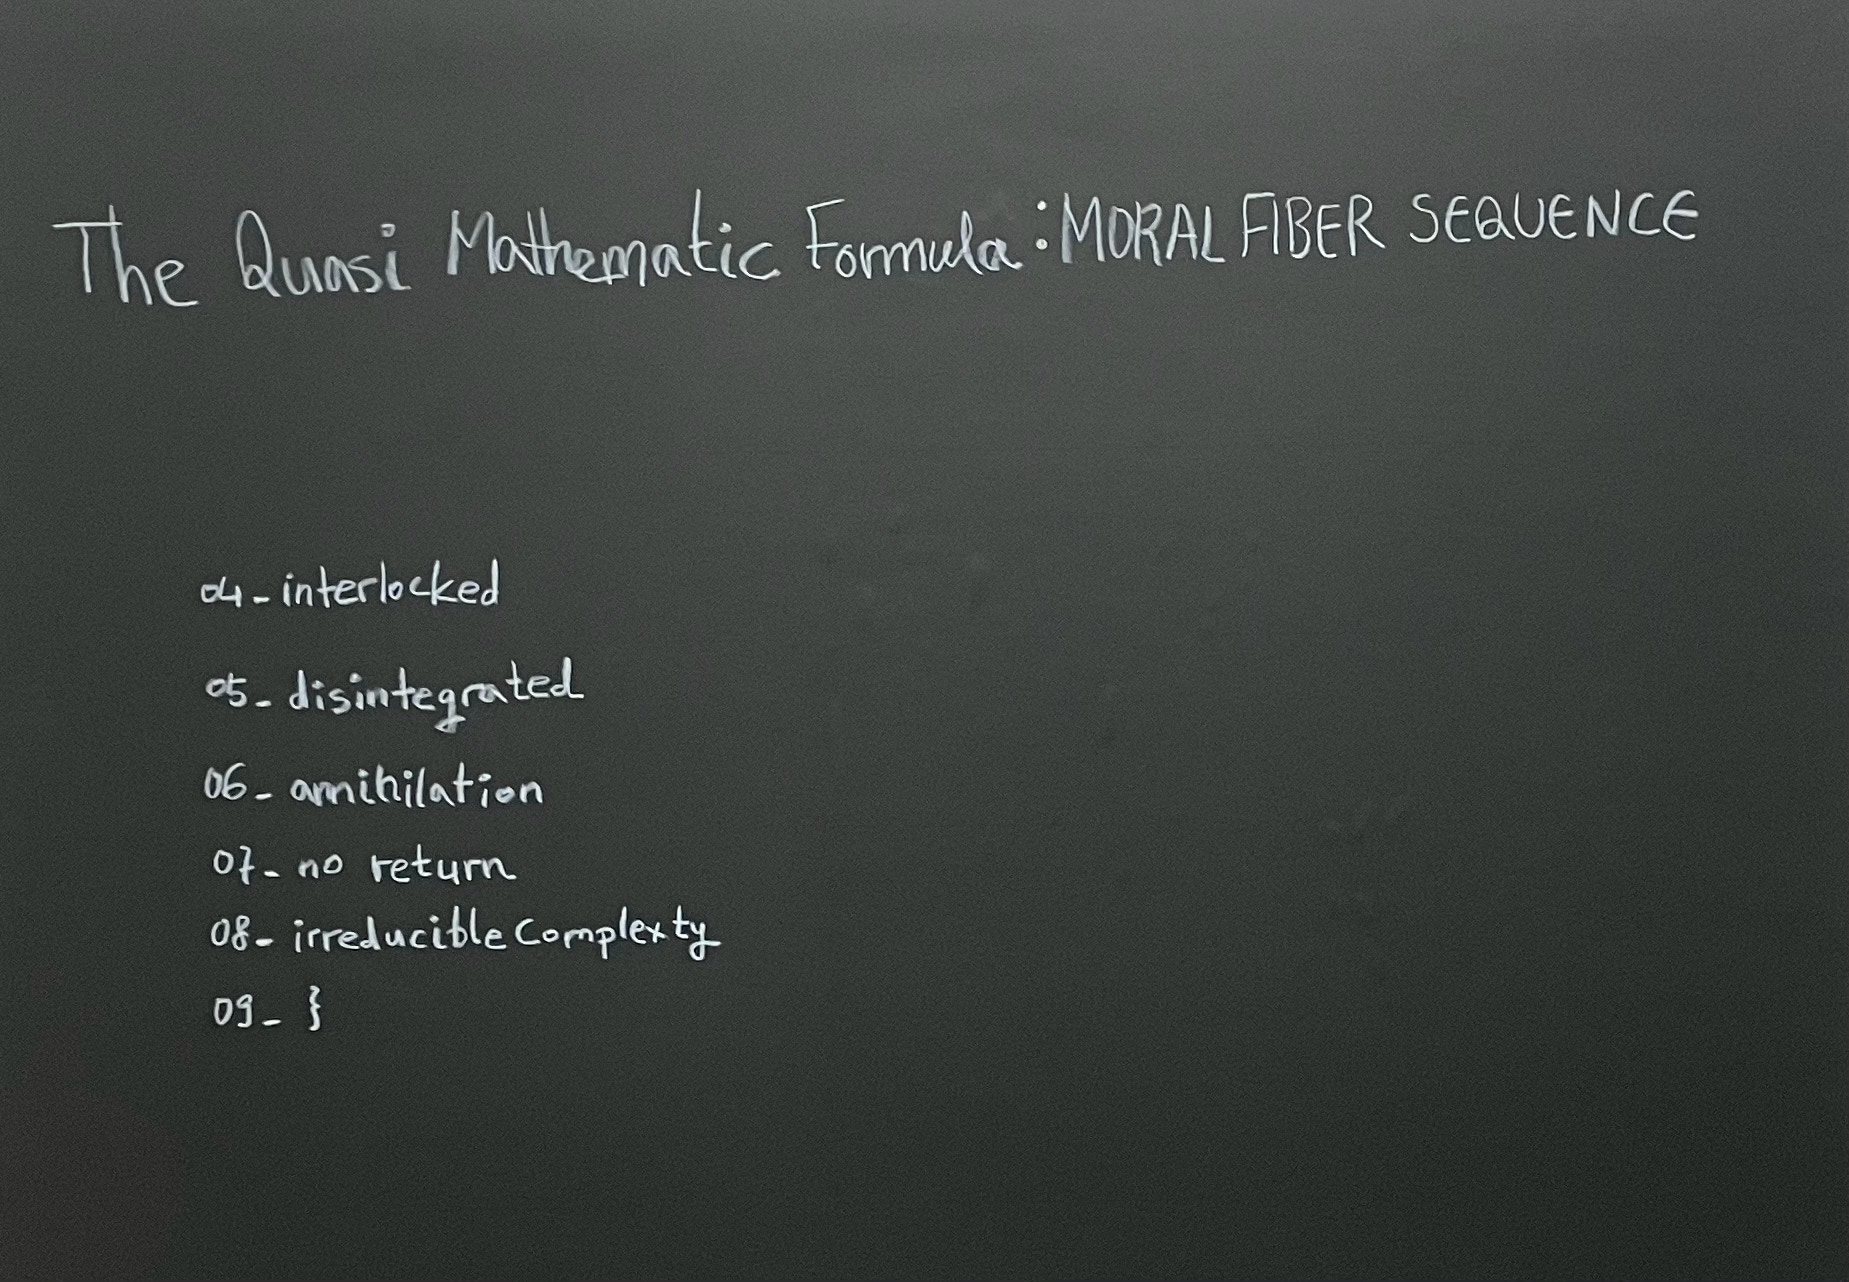 The Quasi Mathematic Formula : MORAL FIBER SEQUENCE
04 - interlocked
05 - disintegrated
06 - annihilation
07 - no return
08 - irreducible complexty
09 - }